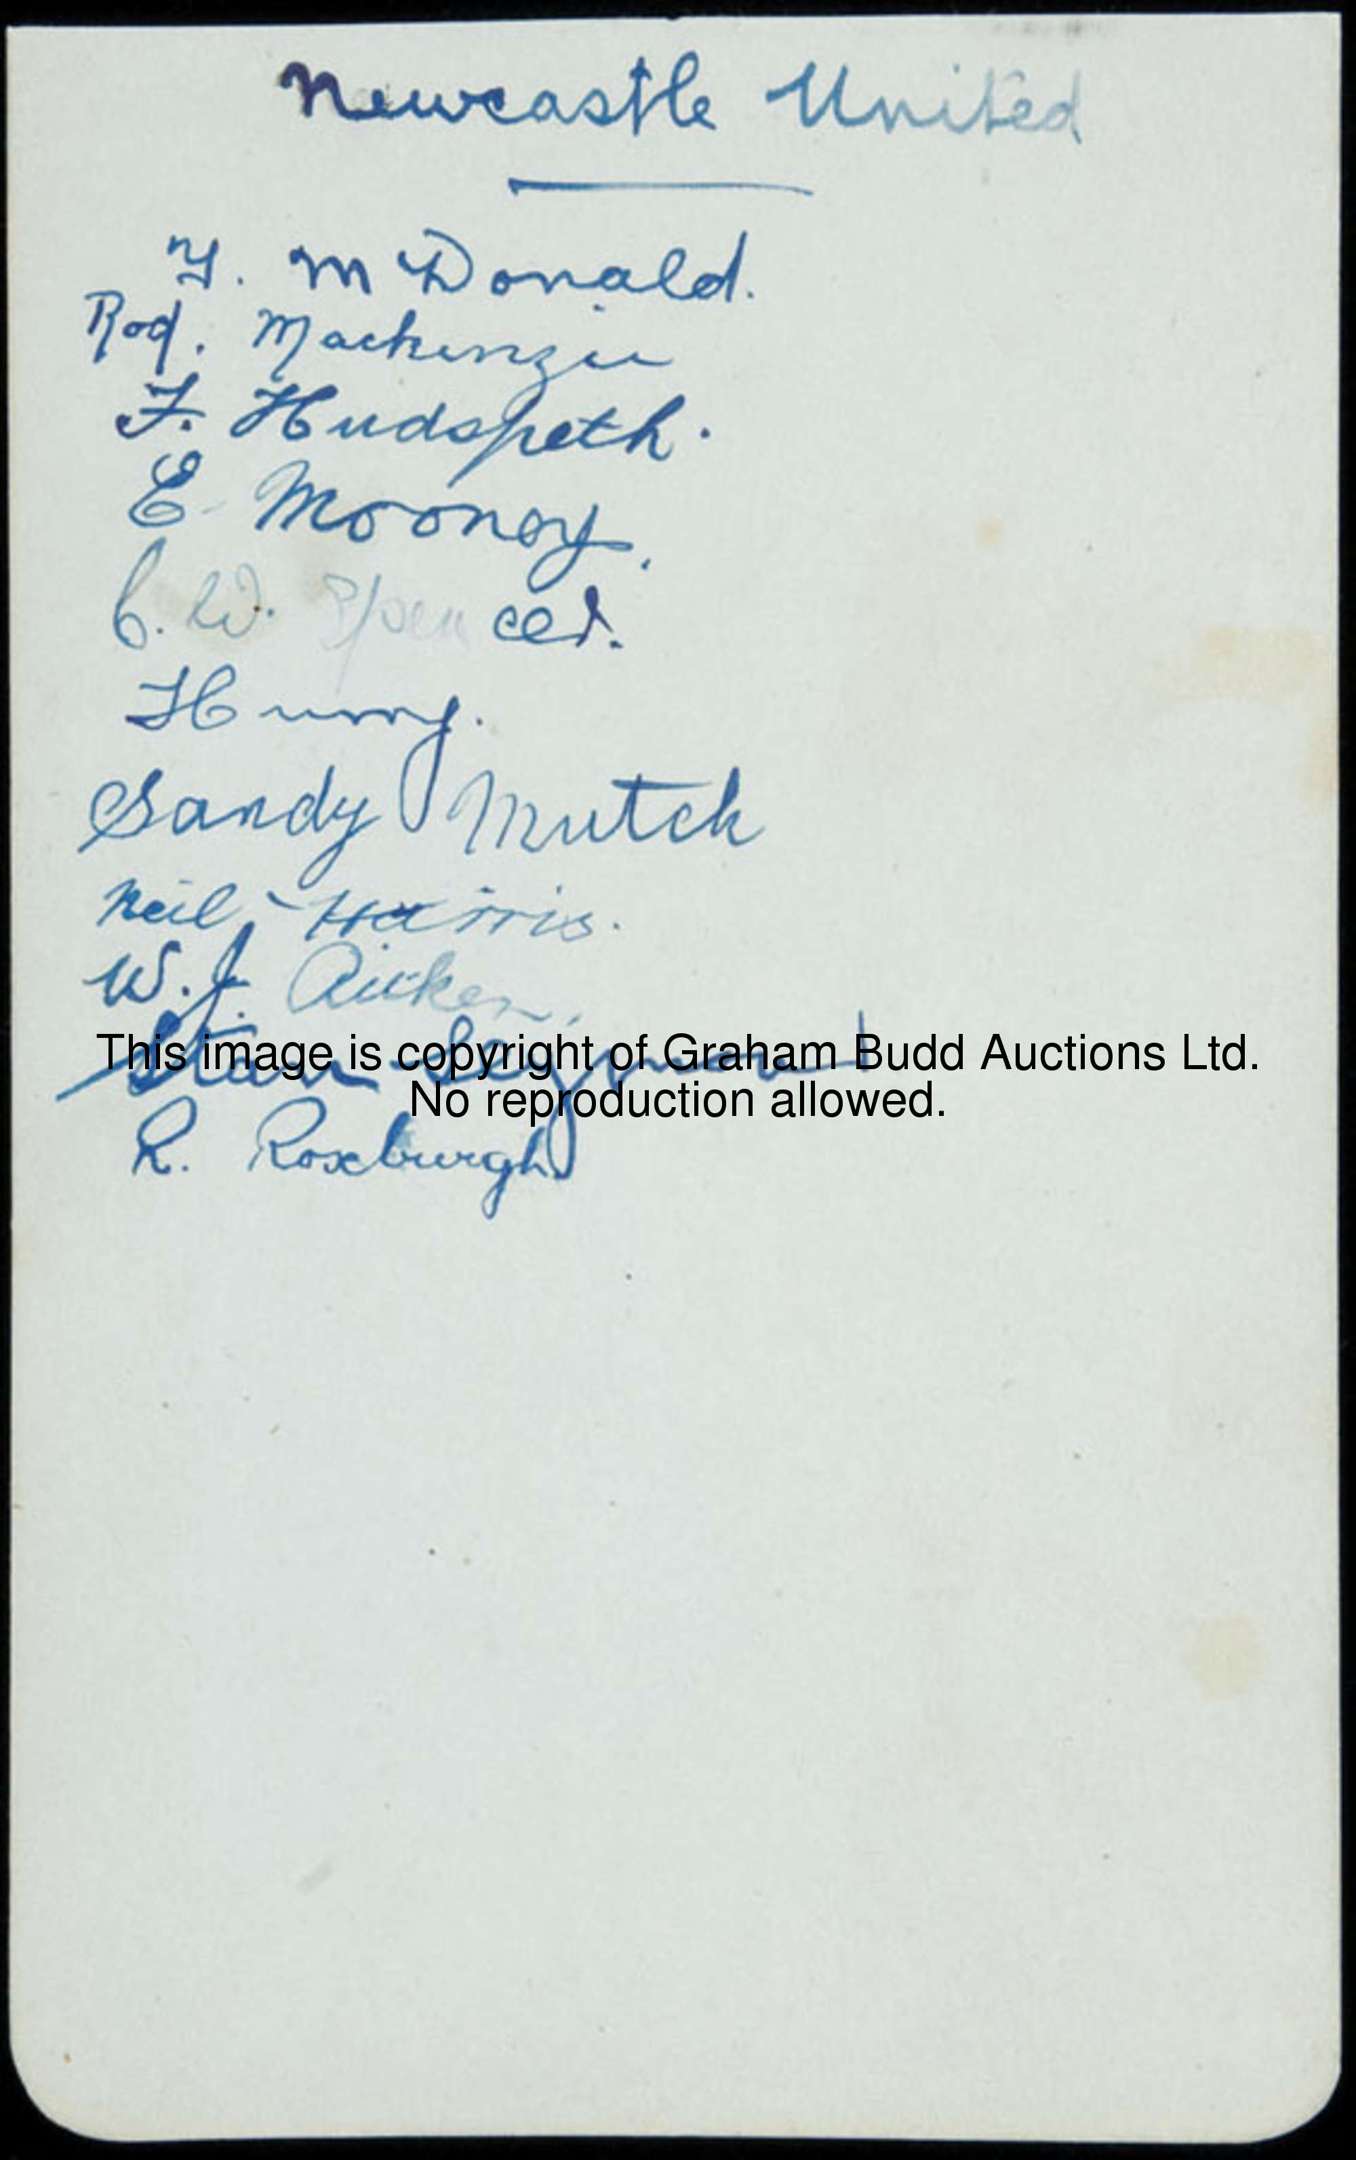 Newcastle United
T. McDonald.
Rod. Mackenzie
F. Hudspeth.
E Mooney.
C. W. Spencer.
Hurry.
Sandy Mutch
Neil Harris.
W. J. Aitken.
Stan Seymour
This image is copyright of Graham Budd Auctions Ltd.
No reproduction allowed.
R. Roxburgh.